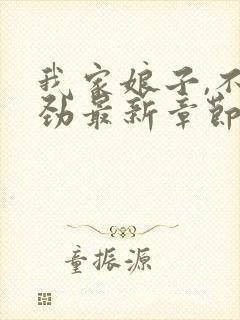 我家娘子,不
劲最新章节
童振源